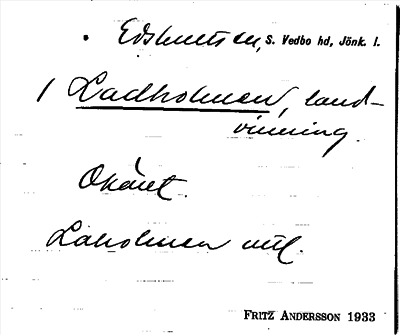 Edshultsen, S. Vedbo hd, Jönk. l.
1 Ladholmen, land-
vinning.
Okänt.
Laholmen utl.
FRITZ ANDERSSON 1933